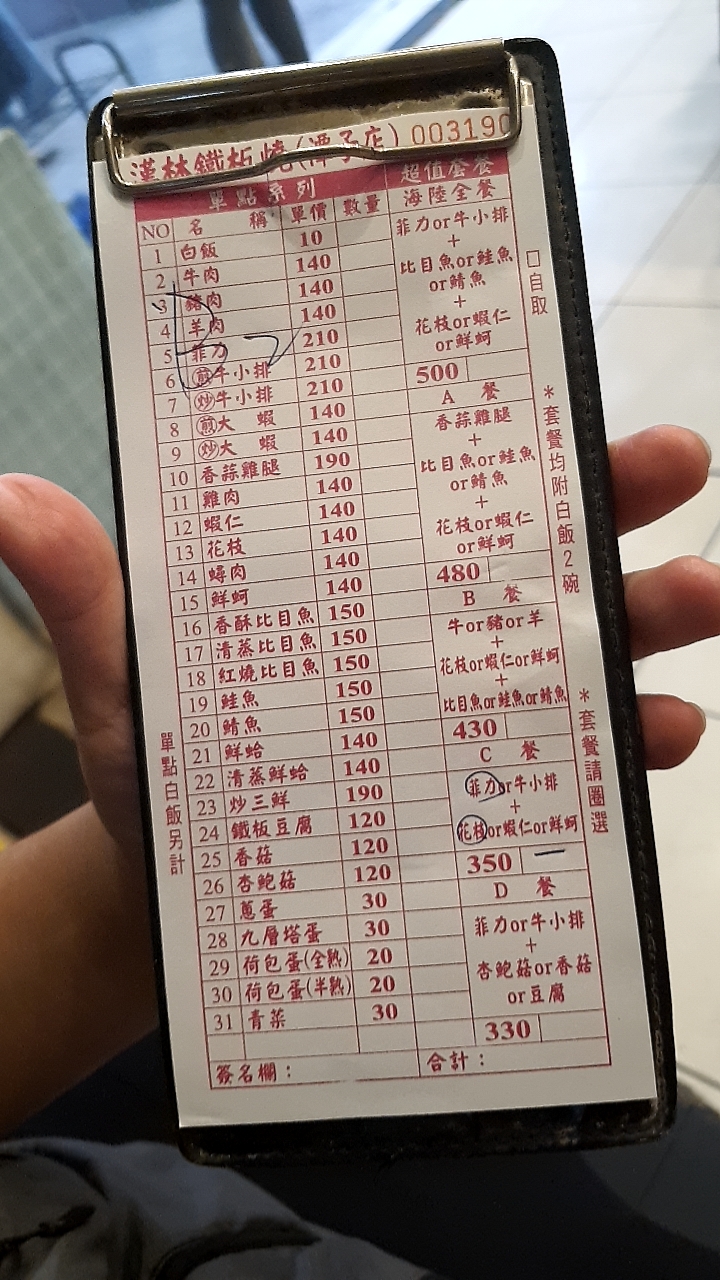 漢林鐵板燒(潭子店) 003190
單點系列
NO 名稱 單價 數量
1 白飯 10
2 牛肉 140
3 豬肉 140
4 羊肉 140
5 菲力 210
6 煎牛小排 210
7 炒牛小排 210
8 煎大蝦 140
9 炒大蝦 140
10 香蒜雞腿 190
11 雞肉 140
12 蝦仁 140
13 花枝 140
14 蟳肉 140
15 鮮蚵 140
16 香酥比目魚 150
17 清蒸比目魚 150
18 紅燒比目魚 150
19 鮭魚 150
20 鯖魚 150
21 鮮蛤 140
22 清蒸鮮蛤 140
23 炒三鮮 190
24 鐵板豆腐 120
25 香菇 120
26 杏鮑菇 120
27 蔥蛋 30
28 九層塔蛋 30
29 荷包蛋(全熟) 20
30 荷包蛋(半熟) 20
31 青菜 30
簽名欄：
單點白飯另計
超值套餐
海陸全餐
菲力or牛小排
+
比目魚or鮭魚
or鯖魚
+
花枝or蝦仁
or鮮蚵
500
A 餐
香蒜雞腿
+
比目魚or鮭魚
or鯖魚
+
花枝or蝦仁
or鮮蚵
480
B 餐
牛or豬or羊
+
花枝or蝦仁or鮮蚵
+
比目魚or鮭魚or鯖魚
430
C 餐
菲力or牛小排
+
花枝or蝦仁or鮮蚵
350 一
D 餐
菲力or牛小排
+
杏鮑菇or香菇
or豆腐
330
合計：
□自取
*套餐均附白飯2碗
*套餐請圈選